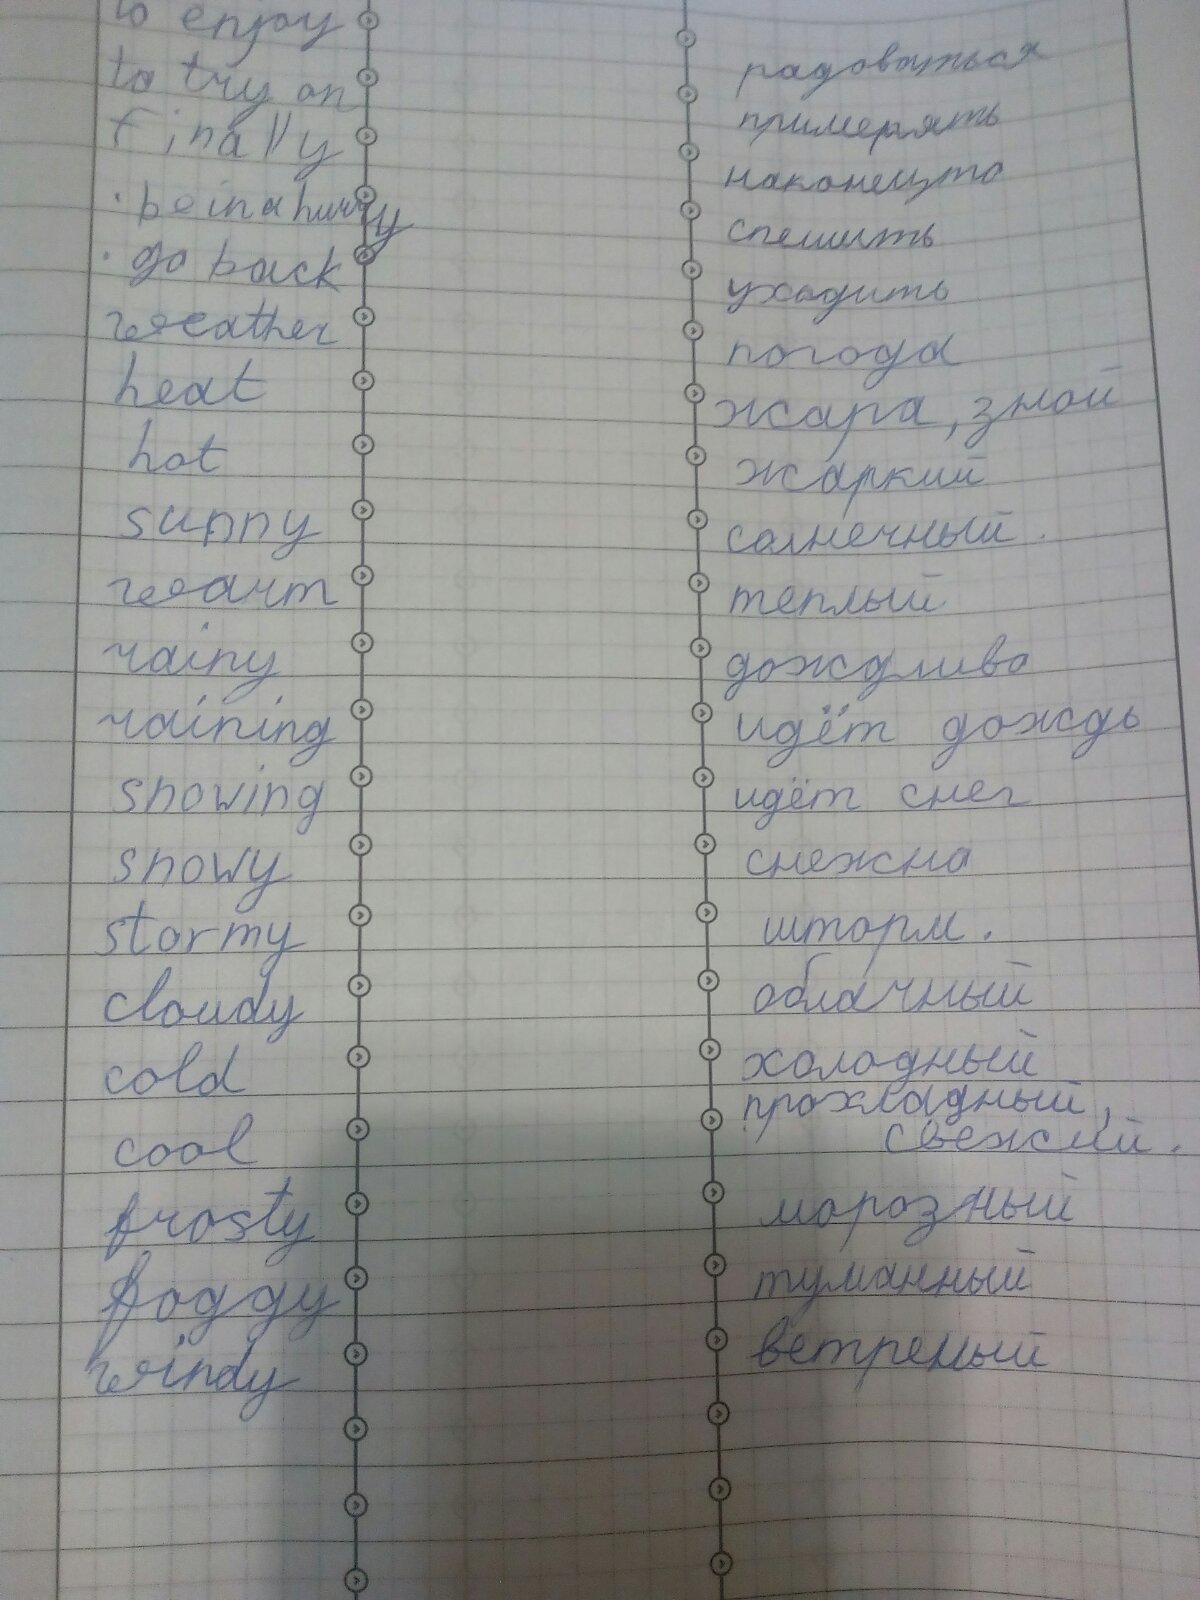 to enjoy радоваться
to try on примерять
finally наконецто
be in a hurry спешить
go back уходить
weather погода
heat жара, зной
hot жаркий
sunny солнечный.
warm теплый
rainy дождливо
raining идёт дождь
snowing идёт снег
snowy снежно
stormy шторм.
cloudy облачный
cold холодный
cool прохладный,
свежий.
frosty морозный
foggy туманный
windy ветреный